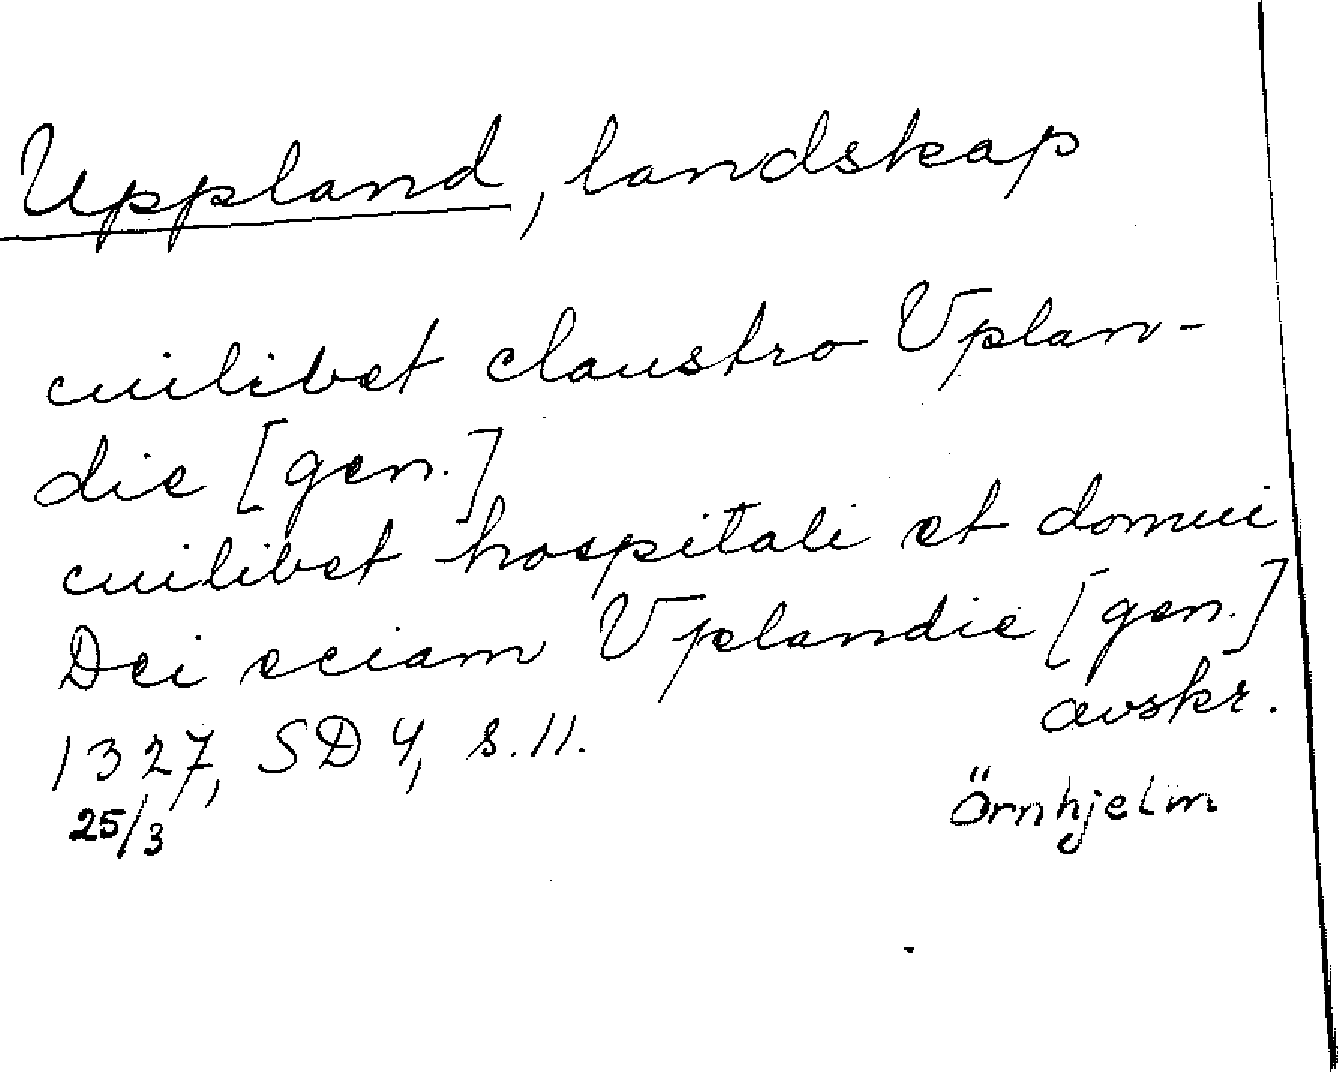 Uppland, landskap
cuilibet claustro Vplan-
die [gen.]
cuilibet hospitali et domui
Dei eciam Vplandie [gen.]
1327, SD 4, s. 11. avskr.
25/3 Örnhjelm